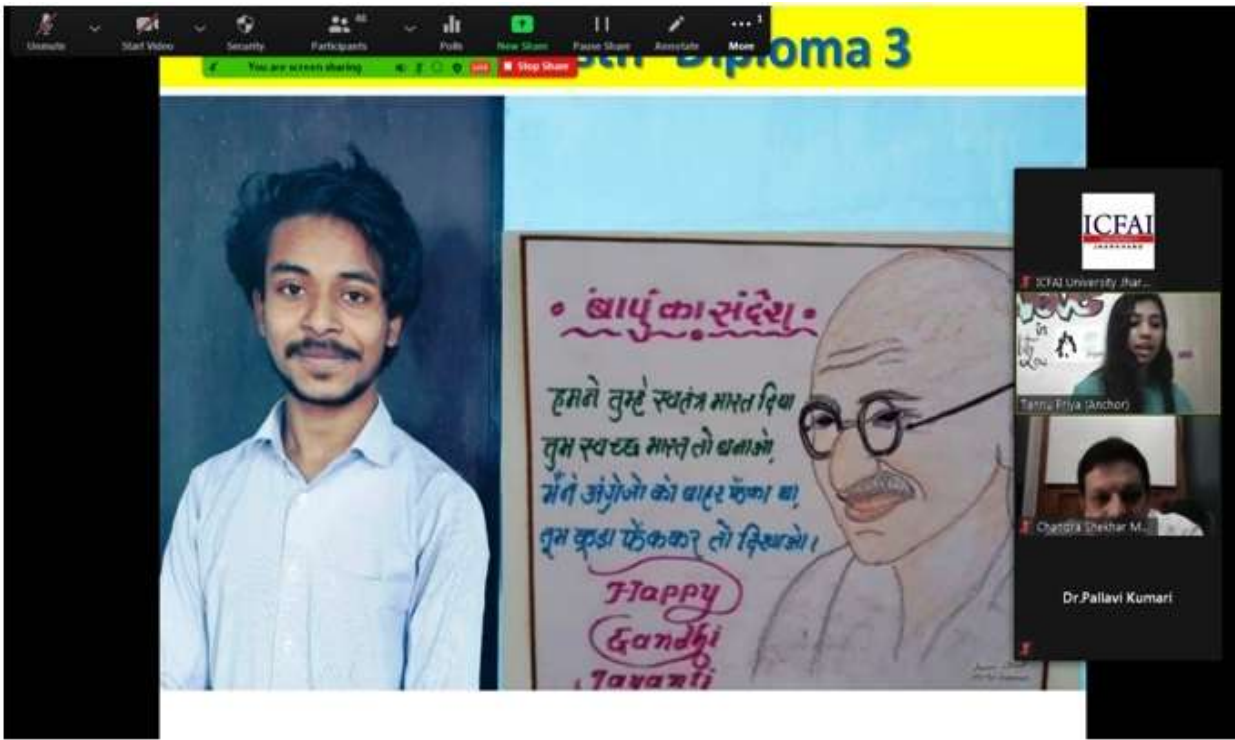 Unmute
Start Video
Security
Participants
Polls
New Share
Pause Share
Annotate
More
You are screen sharing
Stop Share
Diploma 3
• बापु का संदेश •
हमने तुम्हे स्वतंत्र भारत दिया
तुम स्वच्छ भारत तो बनाओ,
मैंने अंग्रेजो को बाहर फेंका था,
तुम कूडा फेंककर तो दिखाओ।
Happy
Gandhi
Jayanti
ICFAI
UNIVERSITY
JHARKHAND
ICFAI University Jhar...
in
Tannu Priya (Anchor)
Chandra Shekhar M...
Dr.Pallavi Kumari